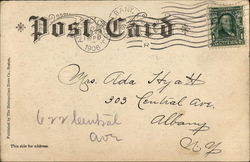 Post Card
1906
Mrs. Ada Hyatt
303 Central Ave.
Albany
N.Y.
622 Central
Ave
Published by The Metropolitan News Co., Boston.
This side for address.